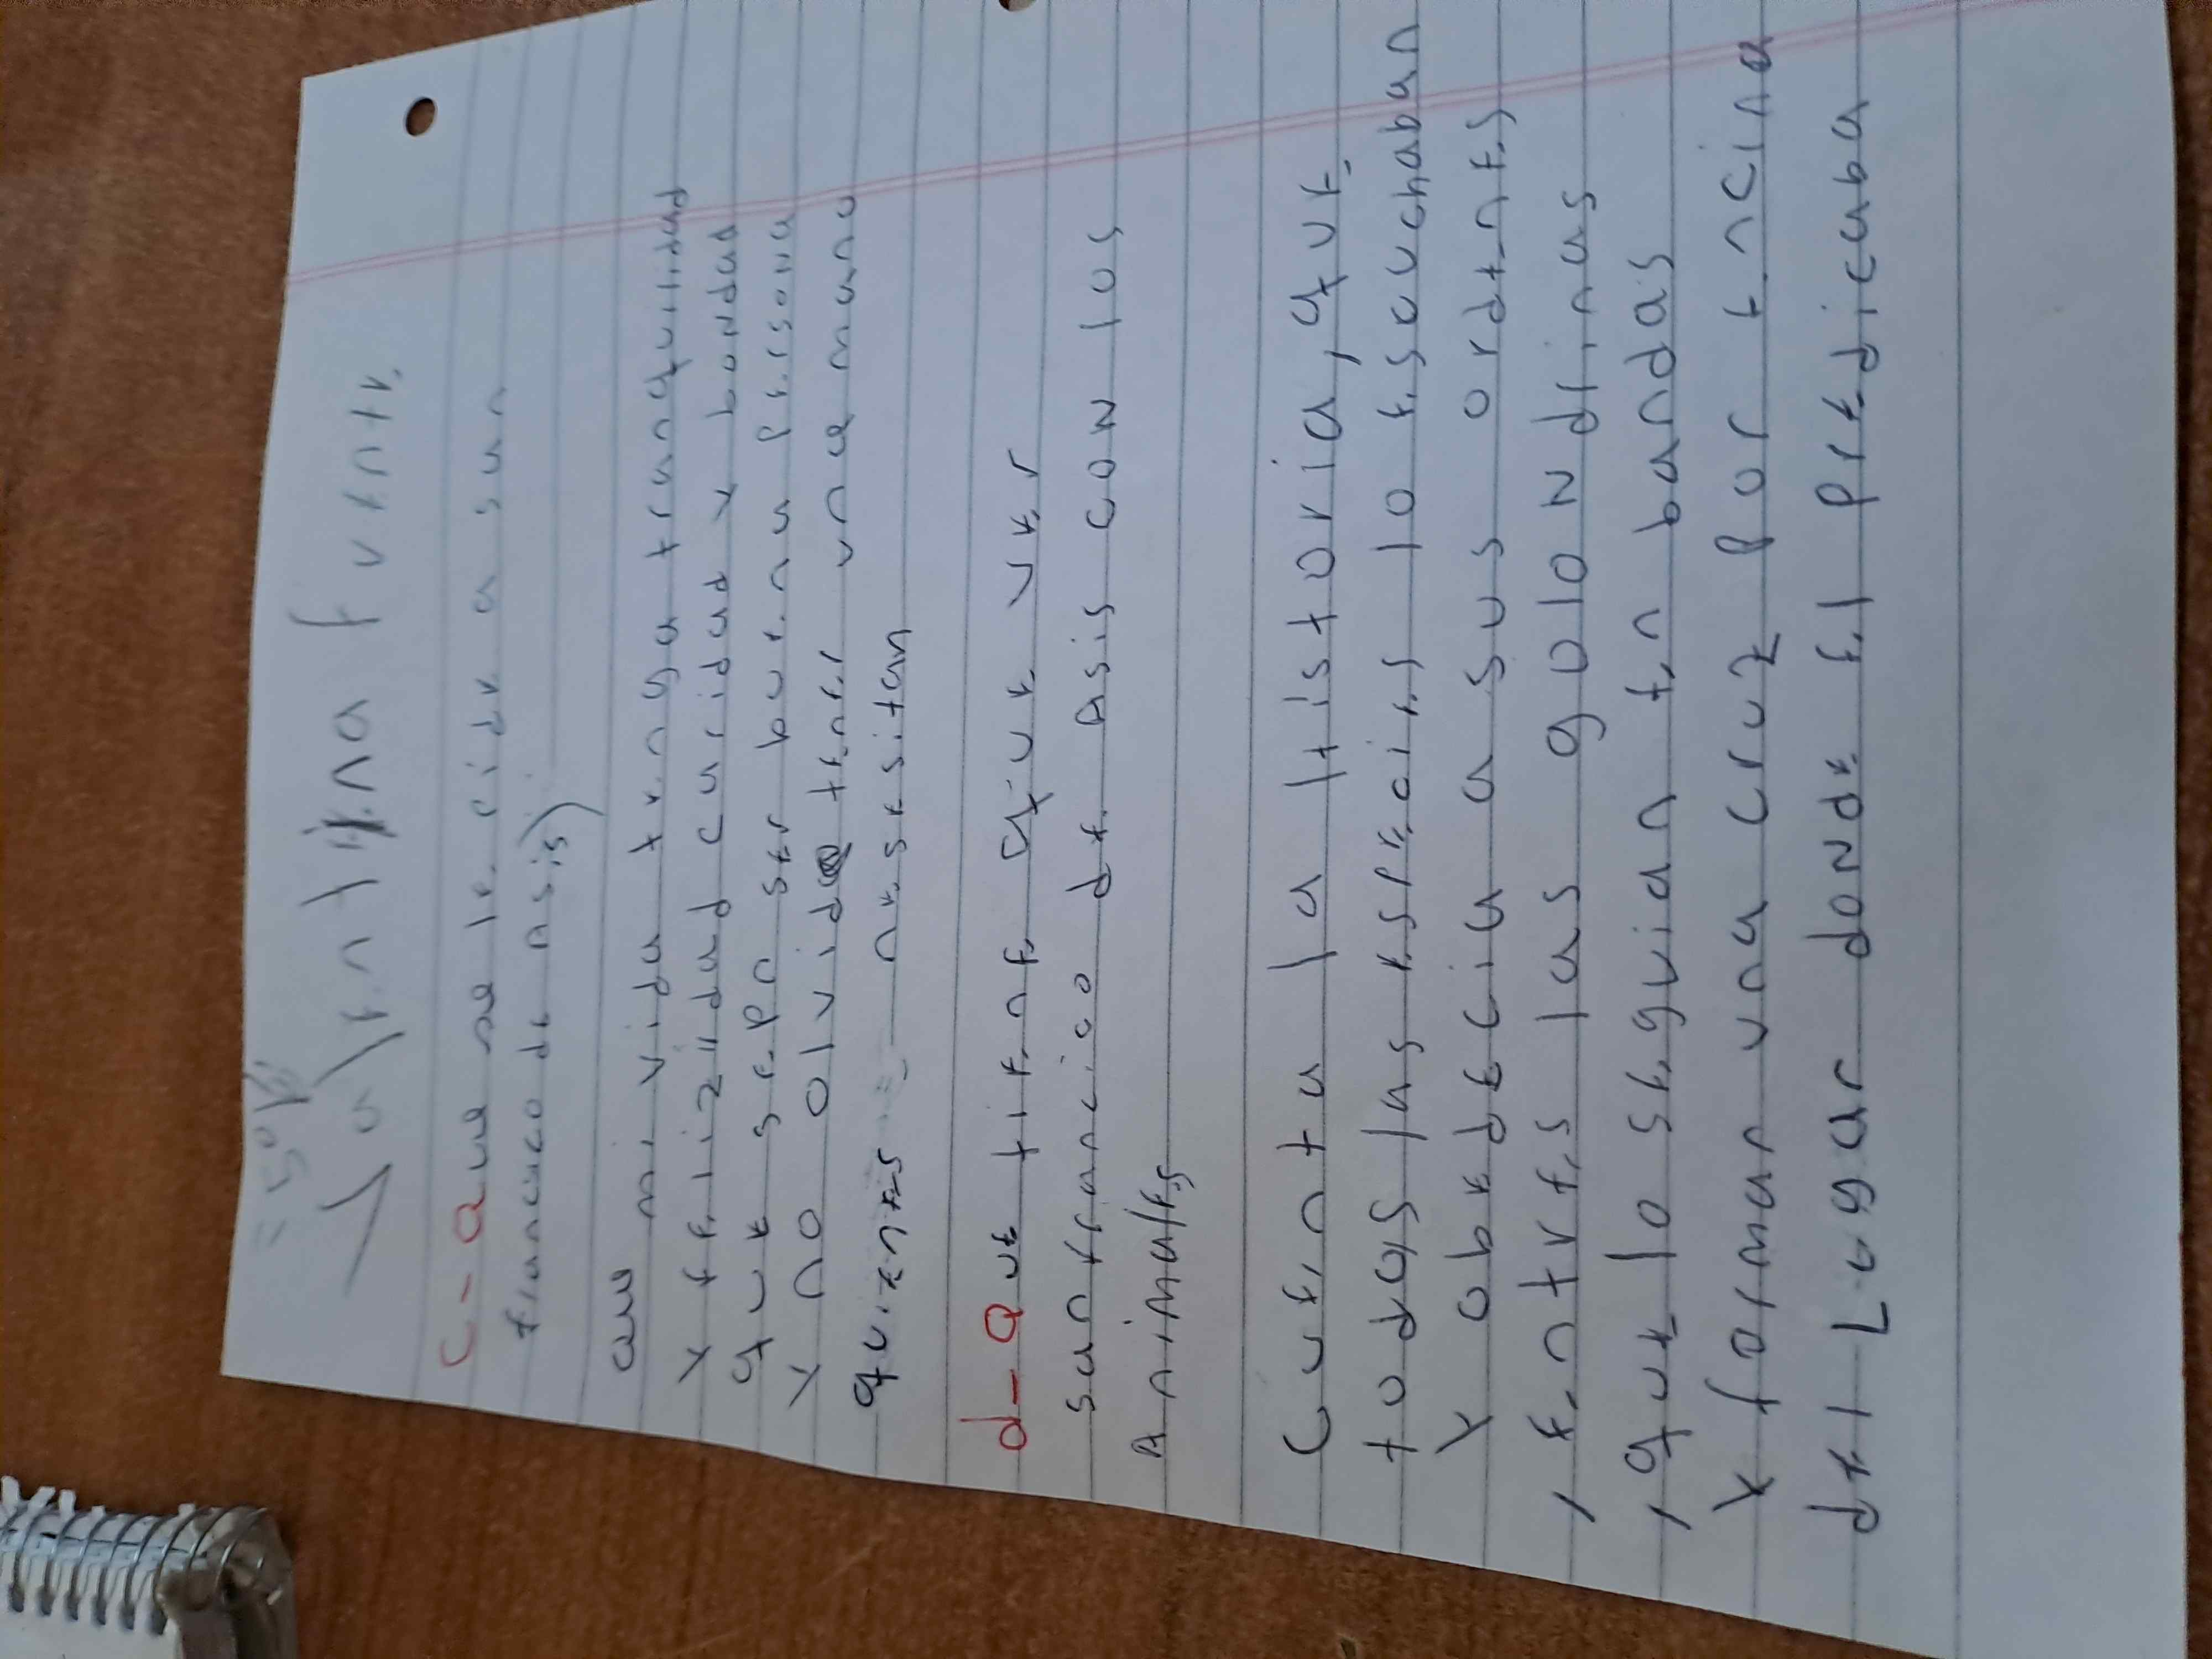 Valentina fuente
C-Que se le pide a san
francisco de asis)
que mi vida tenga tranquilidad
y felizidad caridad y bondad
que sepa ser buena persona
y no olvide tener una mano
quienes nesesitan
d-Que tiene Que ver
sanfrancico de Asis con los
Animales
Cuenta la historia, que
todas las espeoies lo escuchaban
y obedecia a sus ordenes
, entres las golondrinas
, que lo seguian en bandas
y forman una cruz por encina
del Lugar donde el predicaba